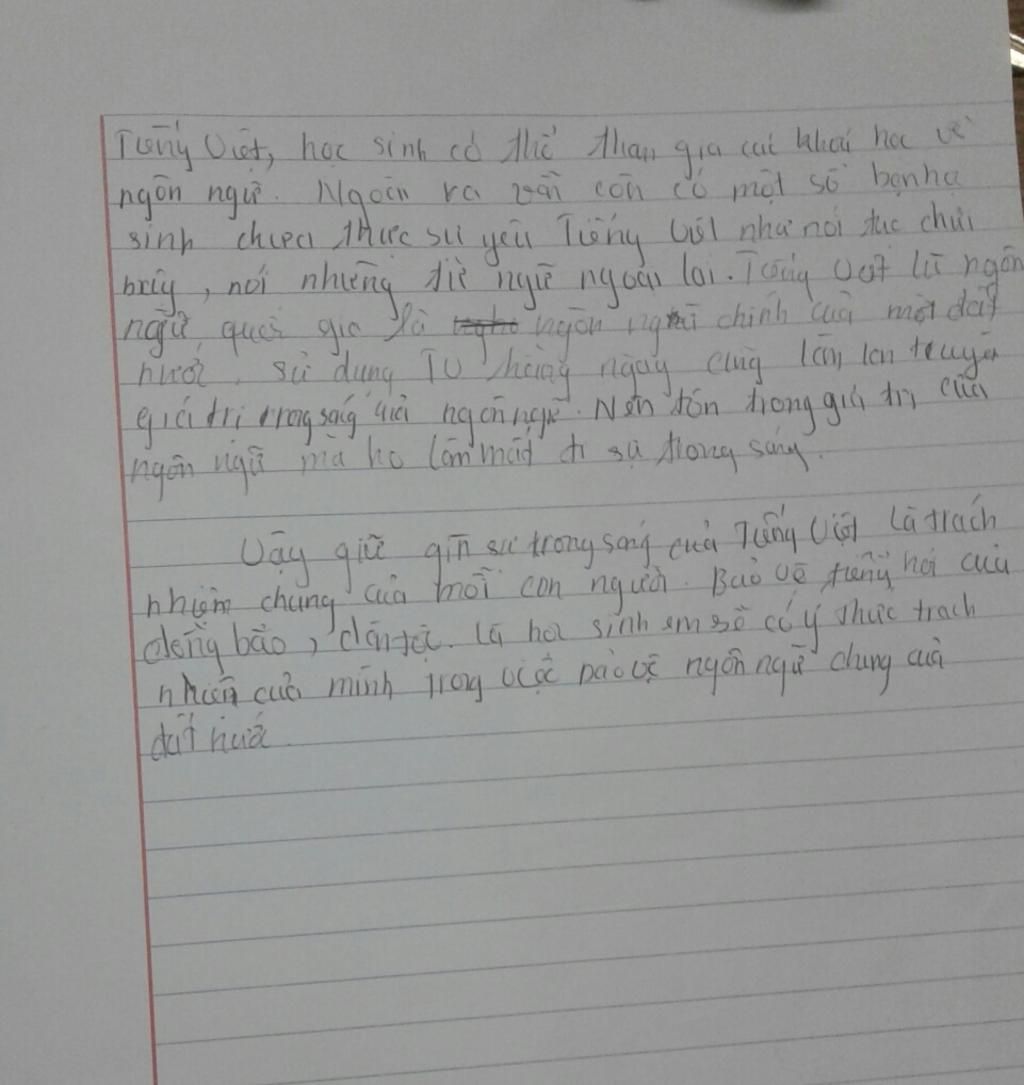 Tiếng Việt, học sinh có thể tham gia các khoá học về
ngôn ngữ. Ngoài ra vẫn còn có một số bạn họ
sinh chưa thực sự yêu Tiếng Việt như nói tục chửi
bậy, nói những từ ngữ ngoại lai. Tiếng Việt là ngôn
ngữ quốc gia là ngôn ngữ chính của một đất
nước, sử dụng hàng ngày cũng lan truyền
giá trị trong sáng của ngôn ngữ. Nên tôn trọng giá trị của
ngôn ngữ mà họ làm mất đi sự trong sáng.
Vậy giữ gìn sự trong sáng của Tiếng Việt là trách
nhiệm chung của mỗi con người. Bảo vệ tiếng nói của
đồng bào, dân tộc. Là học sinh em sẽ có ý thức trách
nhiệm của mình trong việc bảo vệ ngôn ngữ chung của
đất nước